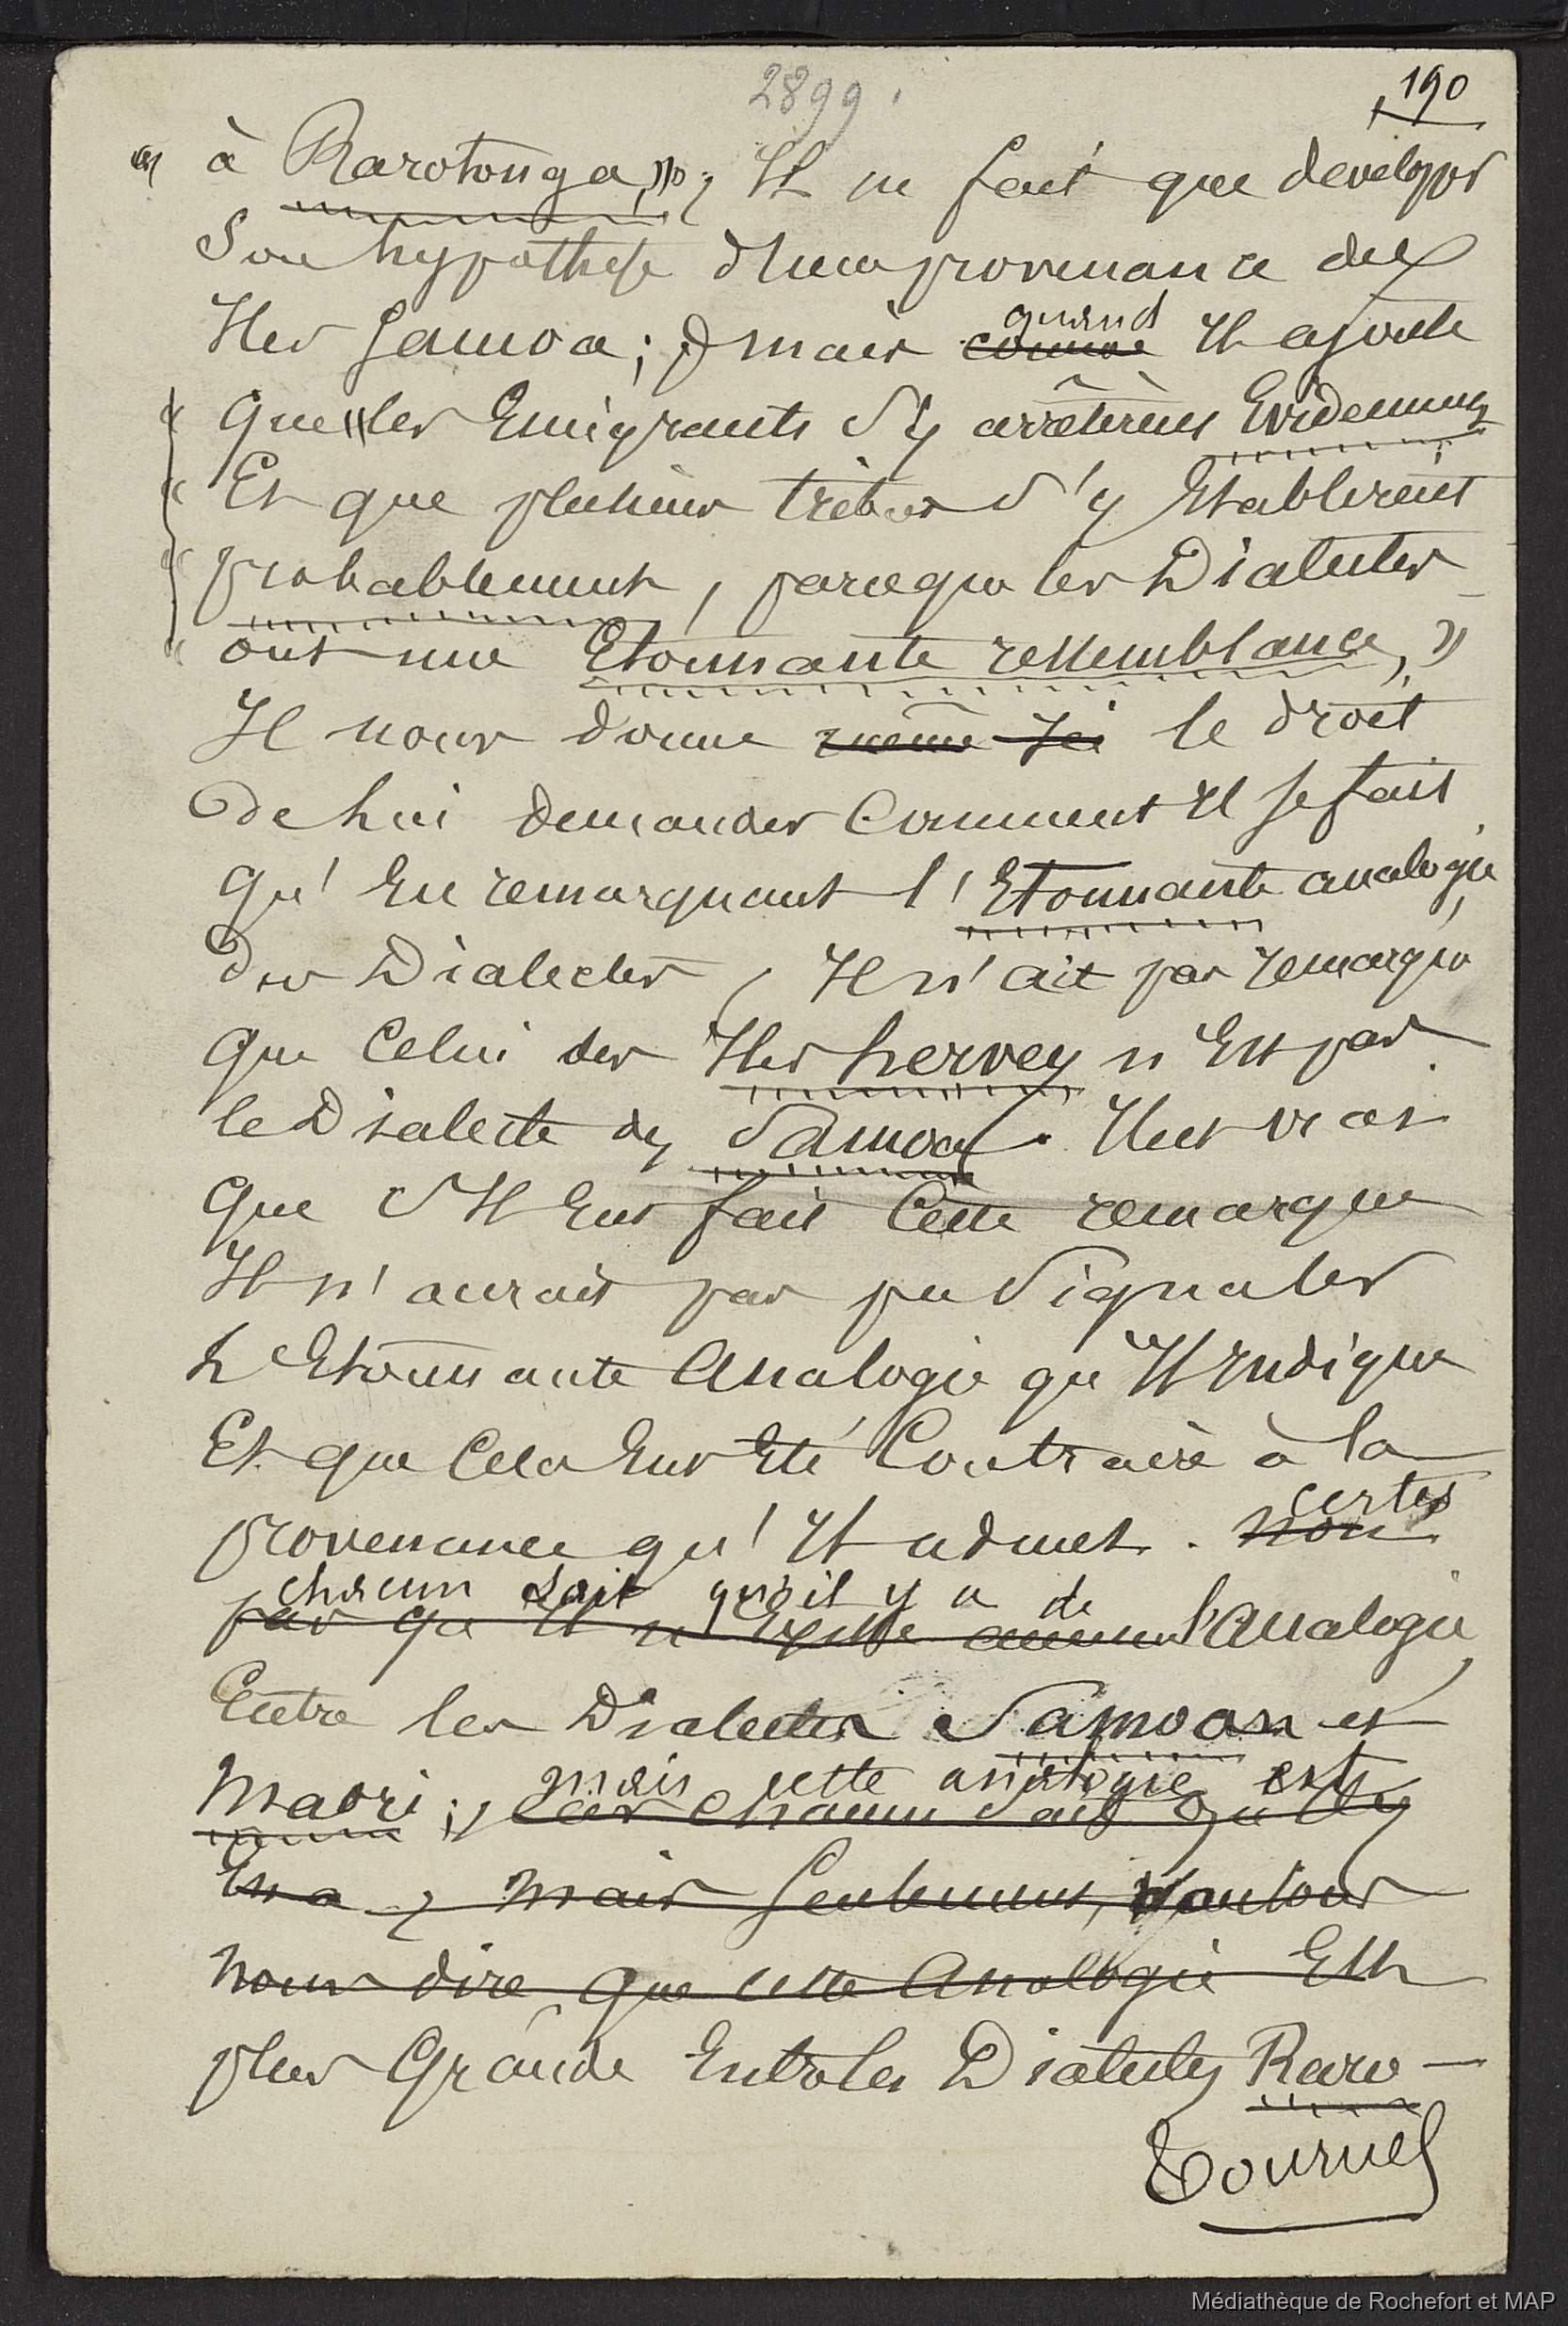 2899.
190
" à Rarotonga,"; Il ne fait que developper
Son hypothese d'une provenance des
Iles Samoa; & mais comme quand Il ajoute
Que "les Emigrants s'y arrêtèrent Evidemment
Et que plusieurs tribus s'y Etablirent
probablement, parceque les Dialectes
ont une Etonnante ressemblance,"
Il nous donne même ici le droit
De lui demander Comment Il se fait
qu'En remarquant l'Etonnante analogie
Des Dialectes, Il n'ait pas remarqué
Que Celui des Iles hervey n'Est pas
le Dialecte des Samoa. Il est vrai
Que s'Il Eut fait Cette remarque
Il n'aurait pas pu signaler
L'Etonnante Analogie qu'Il Indique
Et que Cela Eut Eté Contraire à la
provenance qu'Il admet. non certes
chacun sait qu'il y a de
pas qu'Il n'Existe aucune l'Analogie
Entre les Dialectes Samoan et
mais cette analogie est
Maori; car chacun sait qu'Il y
En a; mais seulement,
nous dire que cette Analogie Est
plus Grande Entre les Dialectes Raro-
Tournez
Médiathèque de Rochefort et MAP